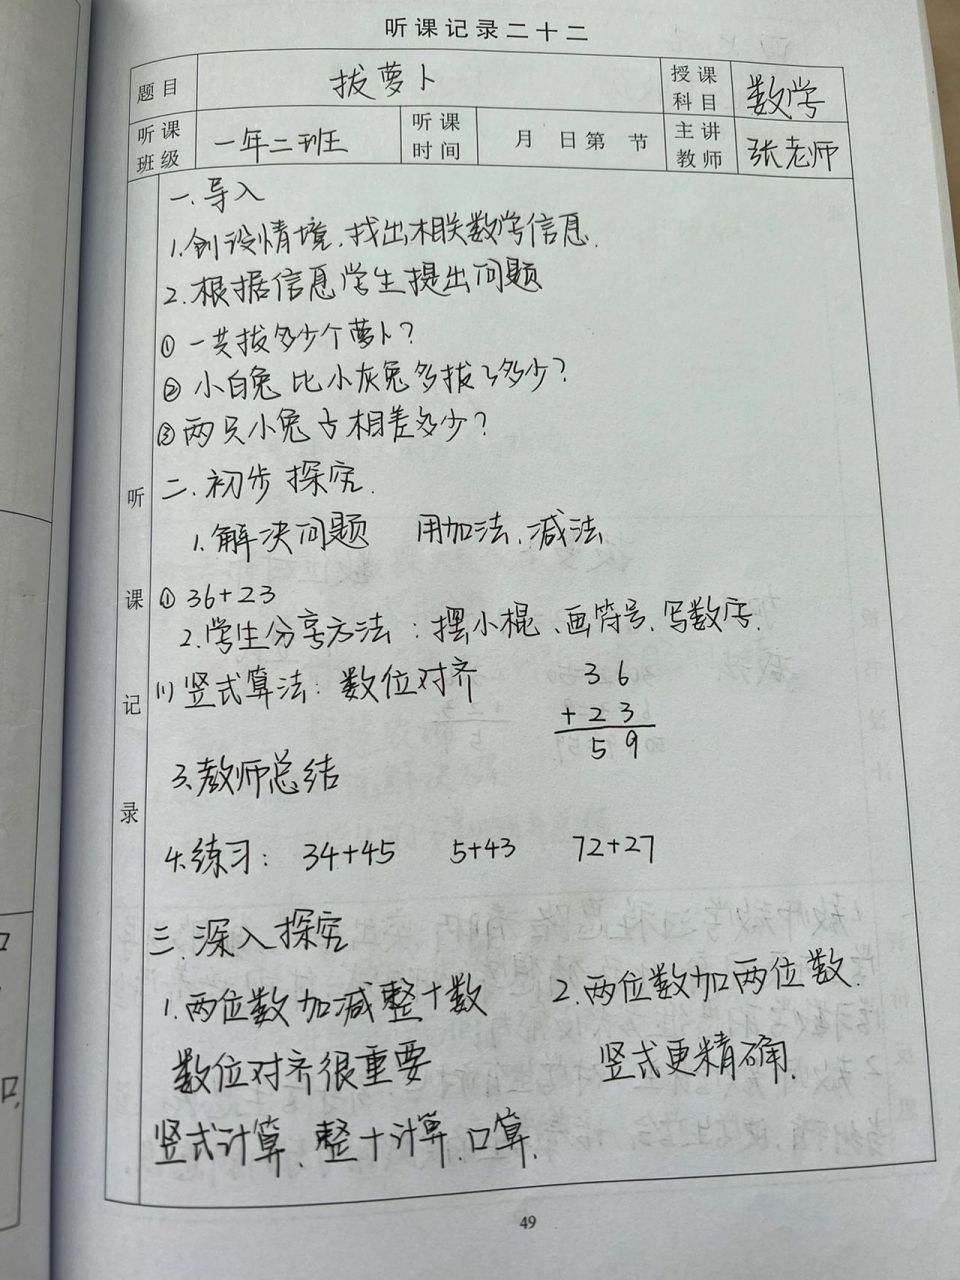 听课记录二十二
题目 拔萝卜 授课科目 数学
听课班级 一年二班 听课时间 月 日第 节 主讲教师 张老师
听课记录
一.导入
1.创设情境.找出相关数学信息.
2.根据信息学生提出问题
① 一共拔多少个萝卜?
② 小白兔比小灰兔多拔了多少?
③ 两只小兔 相差多少?
二.初步探究.
1.解决问题 用加法、减法
① 36+23
2.学生分享方法:摆小棍、画符号、写数字.
(1) 竖式算法:数位对齐
36
+23
59
3.教师总结
4.练习: 34+45 5+43 72+27
三.深入探究
1.两位数加减整十数 2.两位数加两位数.
数位对齐很重要 竖式更精确.
竖式计算、整十计算、口算.
49